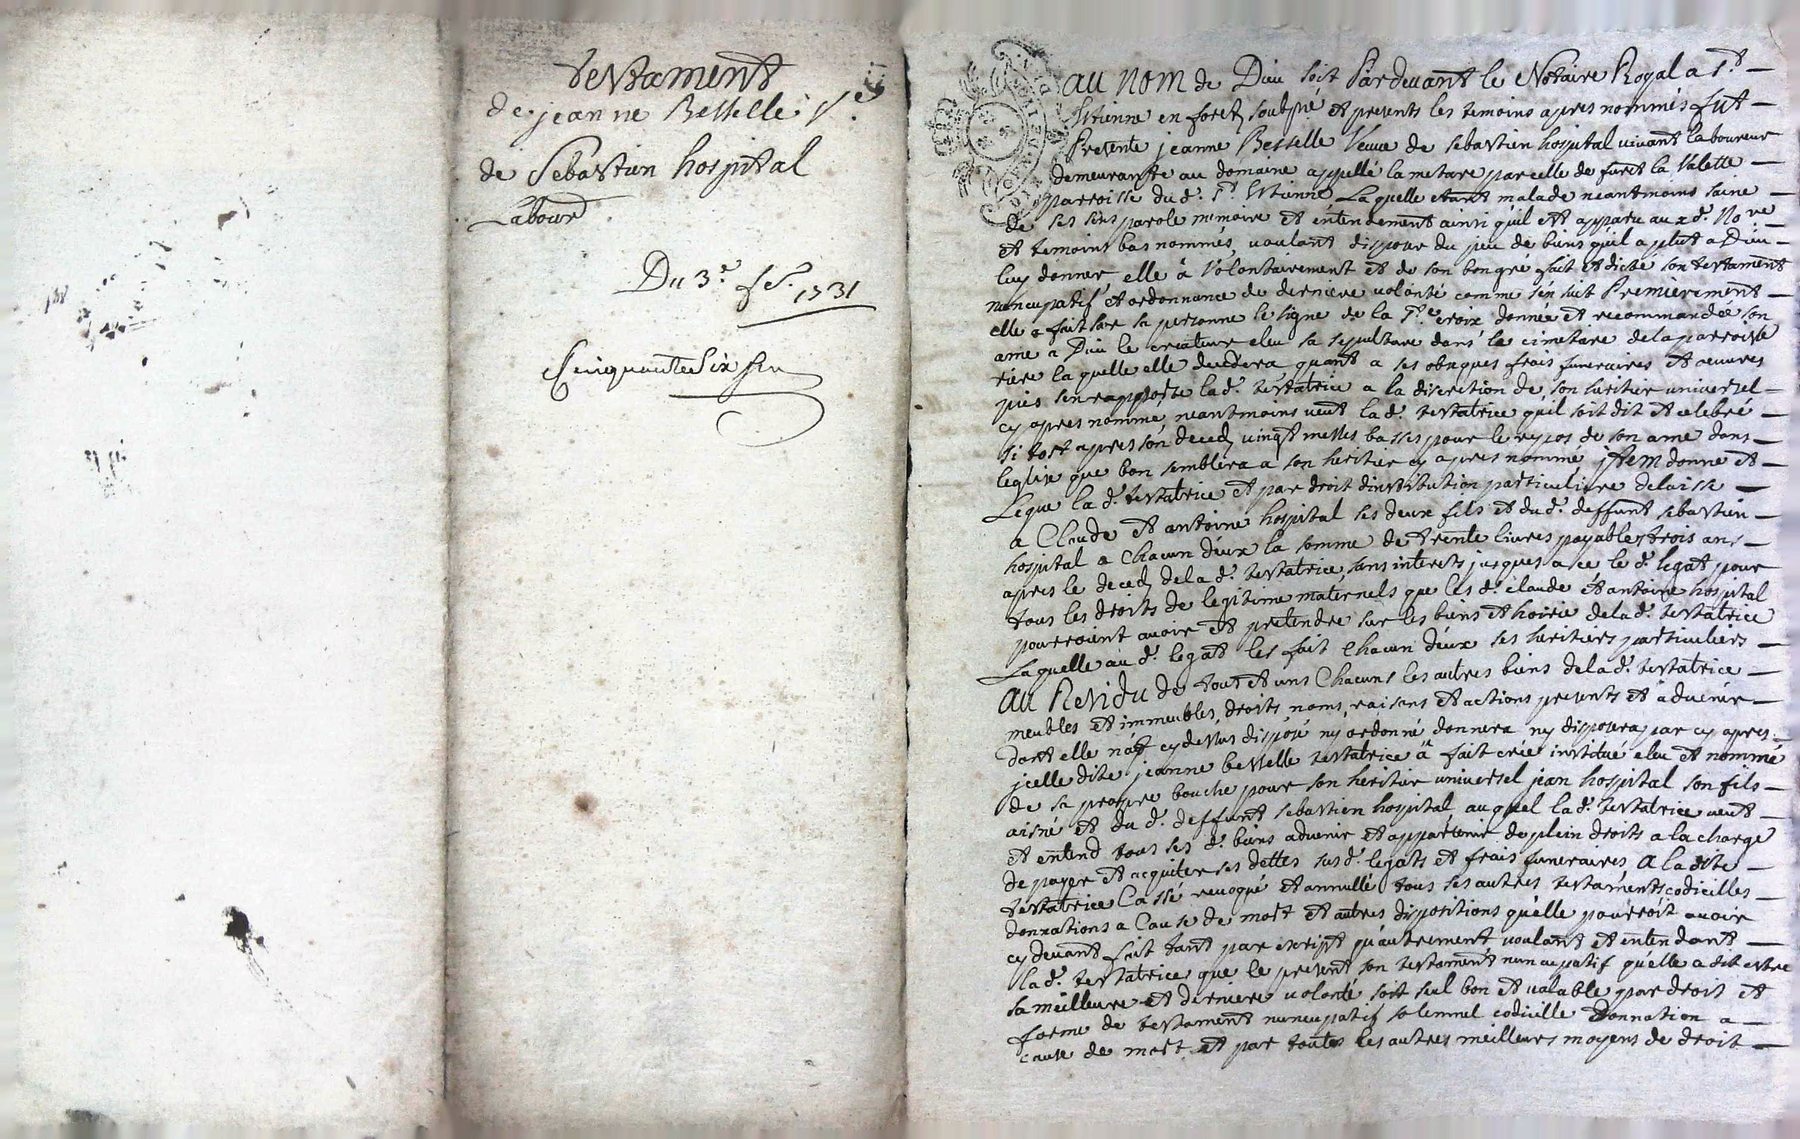 testament
de jeanne Besselle V.e
de Sebastien hospital
Labour
Du 3.e f.er 1731
Cinquante six
au nom de Dieu soit Pardevant le Notaire Royal a S.t
Estienne en foretz soubsné et presents les temoins apres nommés fut
Presente jeanne Besselle Veuve de sebastien hospital vivant laboureur
demeurante au domaine appellé la metare parcelle de furet la Valette
parroisse du d. S.t Estienne Laquelle etant malade neantmoins saine
de ses sens parole memoire et entendement ainsi quil est apparu aux d. No.re
et temoins bas nommés, voulant disposer du peu de biens quil a plut a Dieu
luy donner, elle à Volontairement et de son bon gré fait et dicté son testament
nuncupatif et ordonnance de derniere volonté comme s'en suit Premierement
elle a fait sur sa personne le signe de la S.te croix donnée et recommandée son
ame a Dieu le createur eleu sa sepulture dans le cimetiere de la parroisse
riere la quelle elle decedera quant a ses obseques frais funeraires et oeuvres
pies s'en rapporte la d. testatrice a la discretion de son heritier universel
cy apres nommé, neantmoins veut la d. testatrice qu'il soit dit et celebré
si tost apres son deceds vingt messes basses pour le repos de son ame dans
leglise que bon semblera a son heritier cy apres nommé, jtem donne et
Legue la d. testatrice et par droit d'institution particuliere delaisse
a Claude et antoine hospital ses deux fils et du d. deffunt sebastien
hospital a chacun d'eux la somme de trente livres payables trois ans
apres le deceds de la d. testatrice, sans interests jusques a ce le d. legat pour
tous les droits de legitime maternels que les d. claude et antoine hospital
pourroient avoir et pretendre sur les biens et hoirie de la d. testatrice
Laquelle au d. legat les fait chacun d'eux ses heritiers particuliers
au Residu de tout et uns Chacuns les autres biens de la d. testatrice
meubles et immeubles, droits, noms, raisons et actions presents et a advenir
dont elle n'a cy dessus disposé ny ordonné donnera ny disposera par cy apres
jcelle dite jeanne besselle testatrice à fait crée institue eleu et nommé
de sa propre bouche pour son heritier universel jean hospital son fils
aisné et du d. deffunt sebastien hospital, au quel la d. testatrice veut
et entend tous ses d. biens advenir et appartenir de plein droits a la charge
de payer et acquiter ses dettes sus d. legats et frais funeraires, a la dite
testatrice Cassé revoqué et annullé tous ses autres testaments codicilles
donnations a Cause de mort et autres dispositions qu'elle pourroit avoir
cy devant fait tant par escript qu'autrement, voulant et entendant
la d. testatrice que le present son testament nuncupatif qu'elle a dit estre
sa meilleure et derniere volonté soit seul bon et valable par droit et
forme de testament nuncupatif solemnel codicille Donnation a
cause de mort, et par toutes les autres meilleurs moyens de droit